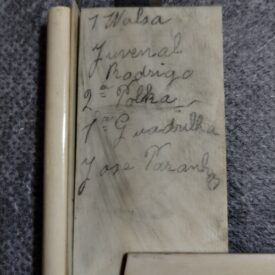 1 Walsa
Juvenal
Rodrigo
2ª Polka
1ª Quadrilha
Jose